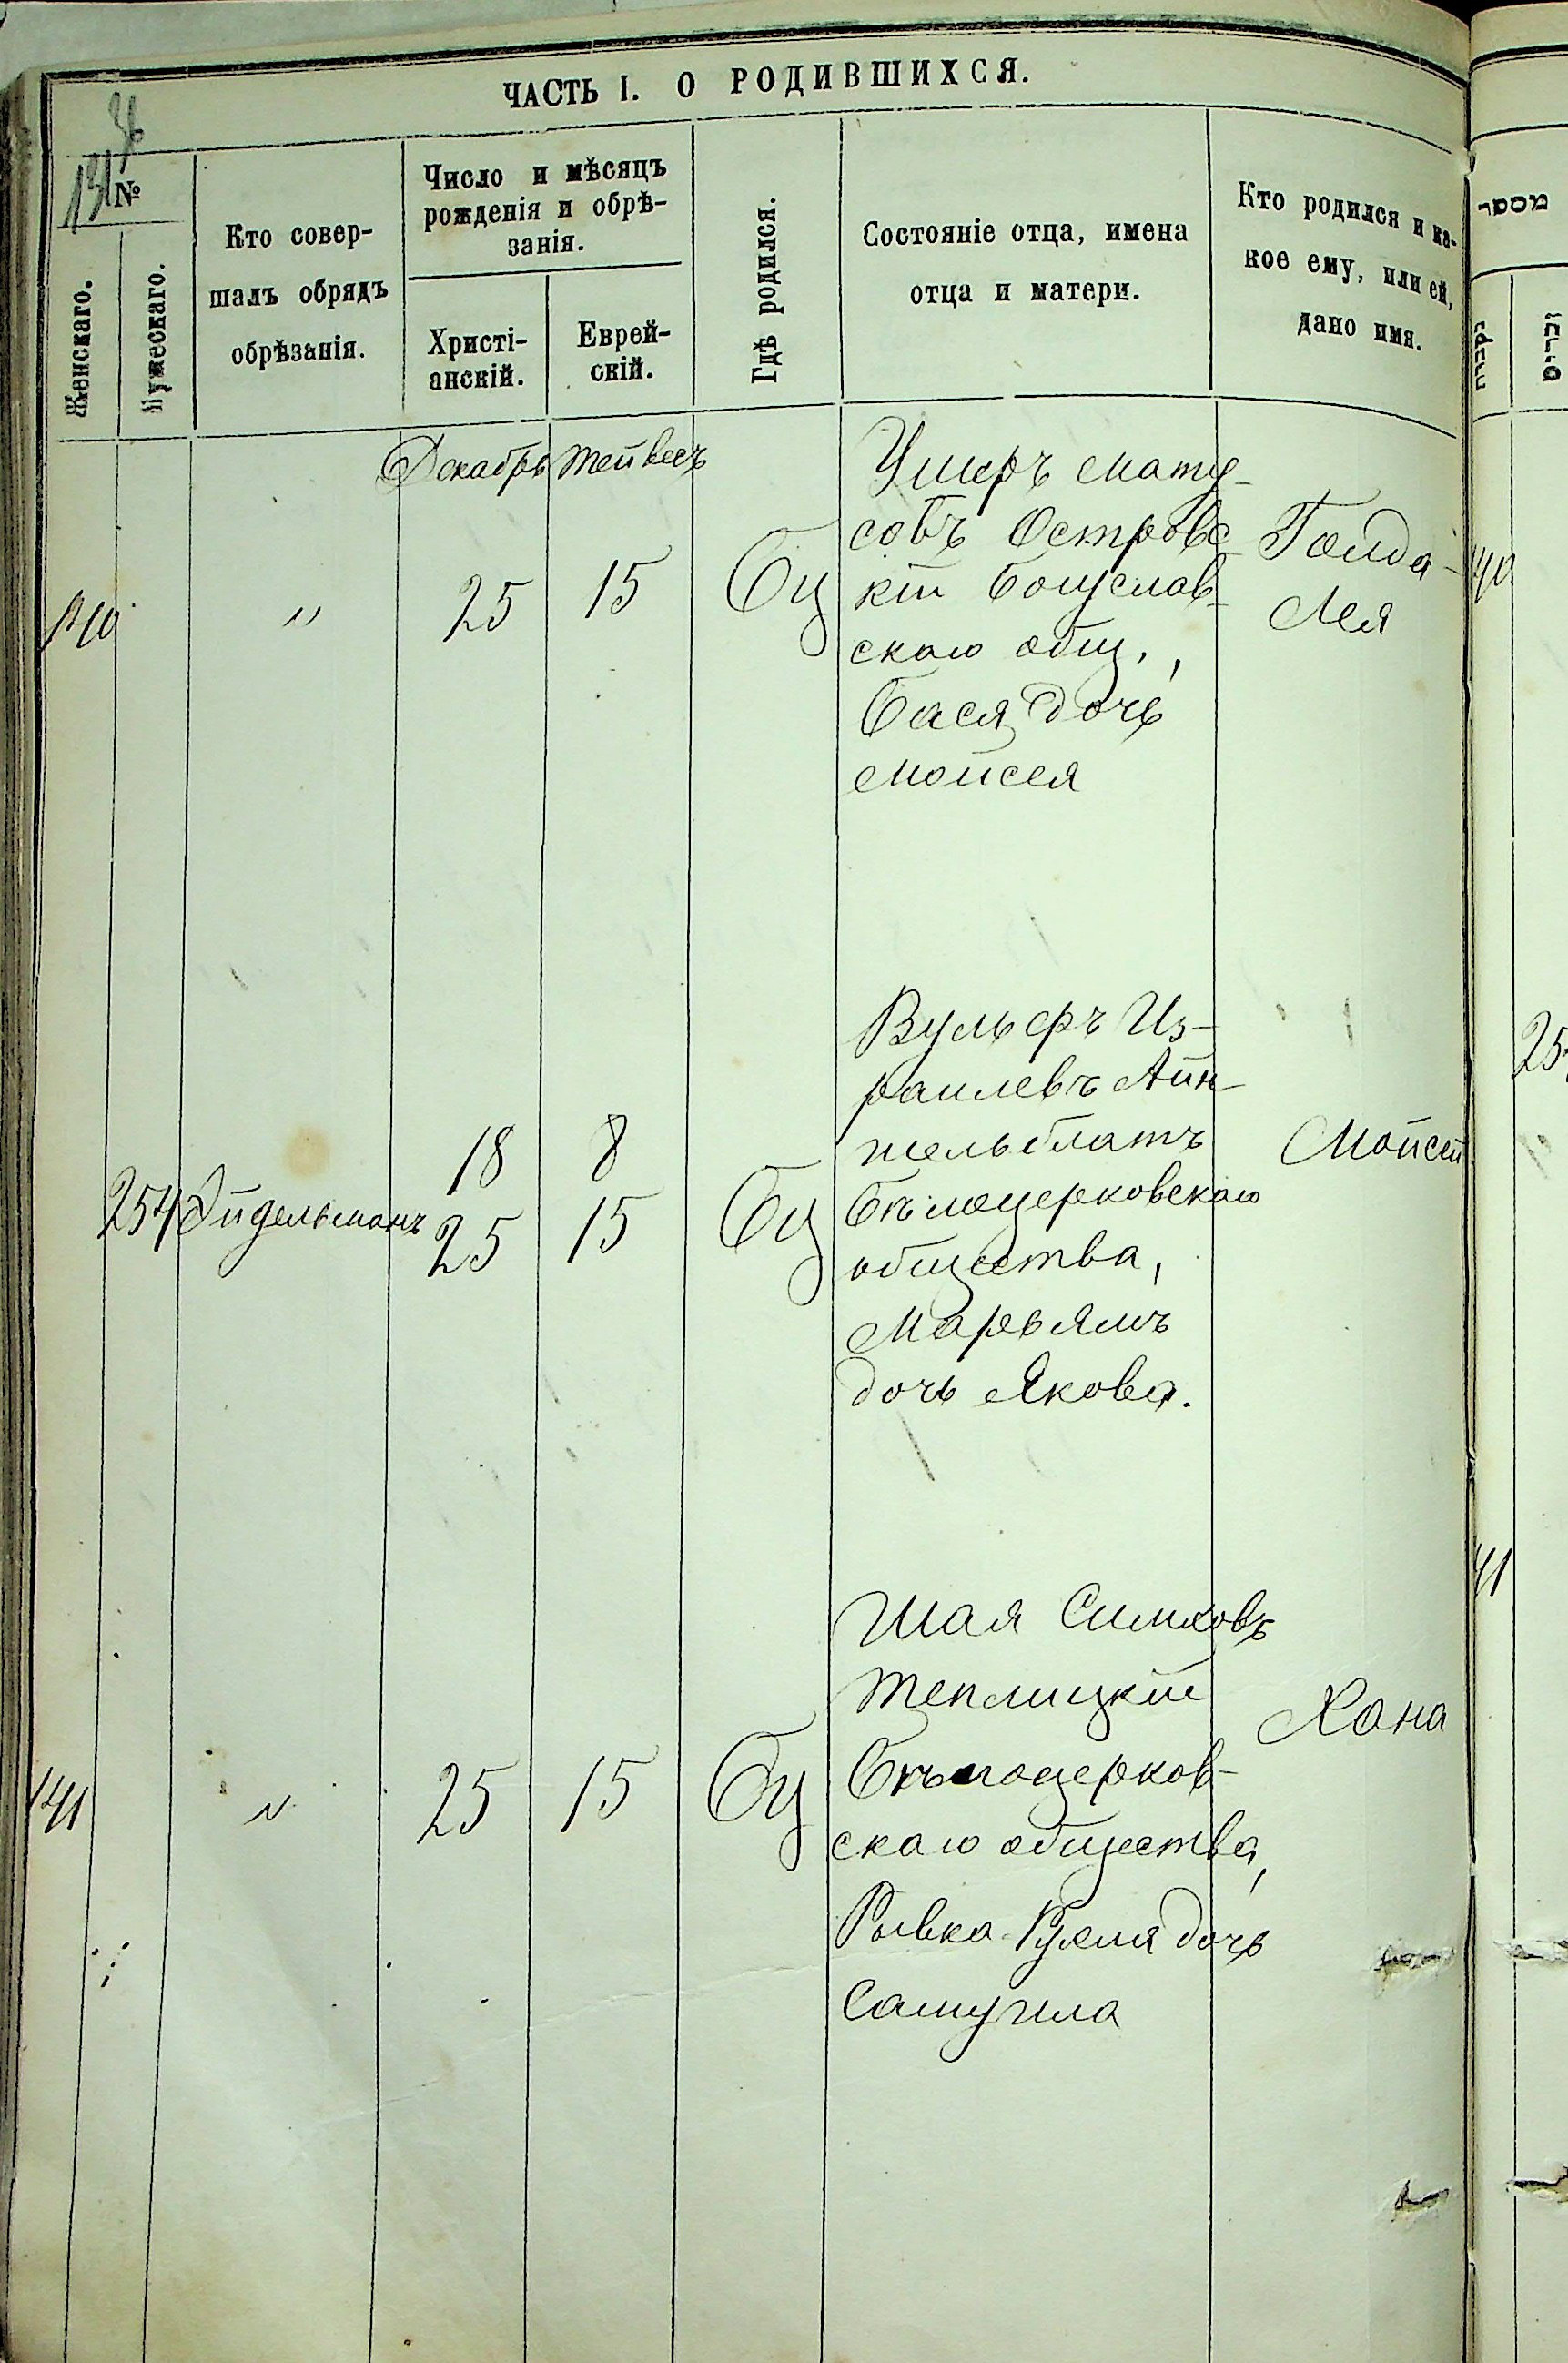 ЧАСТЬ I. О РОДИВШИХСЯ.
131
№
Женскаго.
Мужескаго.
Кто совер-
шалъ обрядъ
обрѣзанія.
Число и мѣсяцъ
рожденія и обрѣ-
занія.
Христі-
анскій.
Еврей-
скій.
Гдѣ родился.
Состояніе отца, имена
отца и матери.
Кто родился и ка-
кое ему, или ей,
дано имя.
מספר
נקבות
זכרים
Декабрь Тейвесъ
140 " 25 15 Бц
Ушеръ Мату-
совъ Островс-
кій Богуслав-
скаго общ.,
Бася дочь
Мойсея
Голда-
Лея
40
254 Эйдельманъ
18 8
25 15
Бц
Вульфъ Из-
раилевъ Айн-
жельблатъ
Бѣлоцерковскаго
общества,
Марьямъ
дочь Якова.
Мойсей
25
141 " 25 15 Бц
Шая Симховъ
Теплицкій
Бѣлоцерков-
скаго общества,
Рывка-Рухля дочь
Самуила
Хана
41